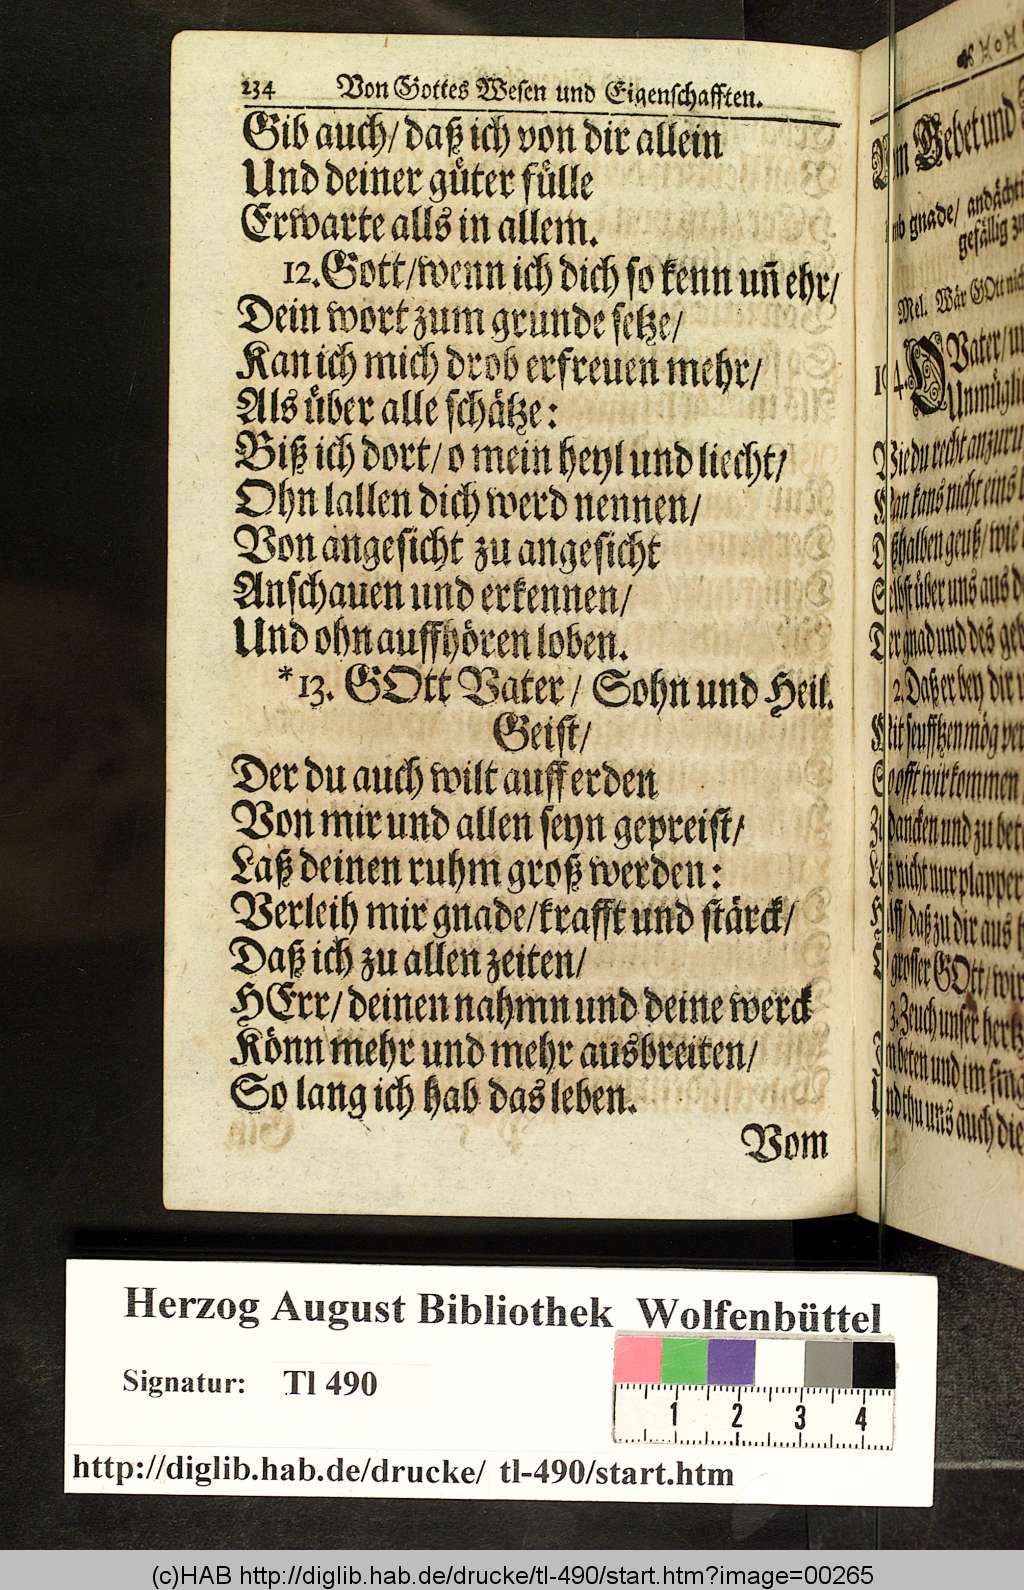 234 Von Gottes Wesen und Eigenschafften.
Gib auch/ daß ich von dir allein
Und deiner güter fülle
Erwarte alls in allem.
12. Gott/ wenn ich dich so kenn uñ ehr/
Dein wort zum grunde setze/
Kan ich mich drob erfreuen mehr/
Als über alle schätze:
Biß ich dort/ o mein heyl und liecht/
Ohn lallen dich werd nennen/
Von angesicht zu angesicht
Anschauen und erkennen/
Und ohn auffhören loben.
*13. GOtt Vater/ Sohn und Heil.
Geist/
Der du auch wilt auff erden
Von mir und allen seyn gepreist/
Laß deinen ruhm groß werden:
Verleih mir gnade/ krafft und stärck/
Daß ich zu allen zeiten/
HErr/ deinen nahmn und deine werck
Könn mehr und mehr ausbreiten/
So lang ich hab das leben.
Vom
Gebet und
gnade/ andächti
gefällig
Mel. Wär GOtt nich
Vater/
Unmügli
Wie du recht anzuru
kans nicht eins
halben geuß/ wie
Selbst über uns aus
Der gnad und des geb
2. Daß er bey dir
Mit seufftzen mög
So offt wir kommen
Zu dancken und zu bet
nicht nur plapper
daß zu dir aus
grosser GOtt/ wir
3. Zeuch unser hertz
beten und im sing
Und thu uns auch die
Herzog August Bibliothek Wolfenbüttel
Signatur: Tl 490
1 2 3 4
http://diglib.hab.de/drucke/ tl-490/start.htm
(c)HAB http://diglib.hab.de/drucke/tl-490/start.htm?image=00265